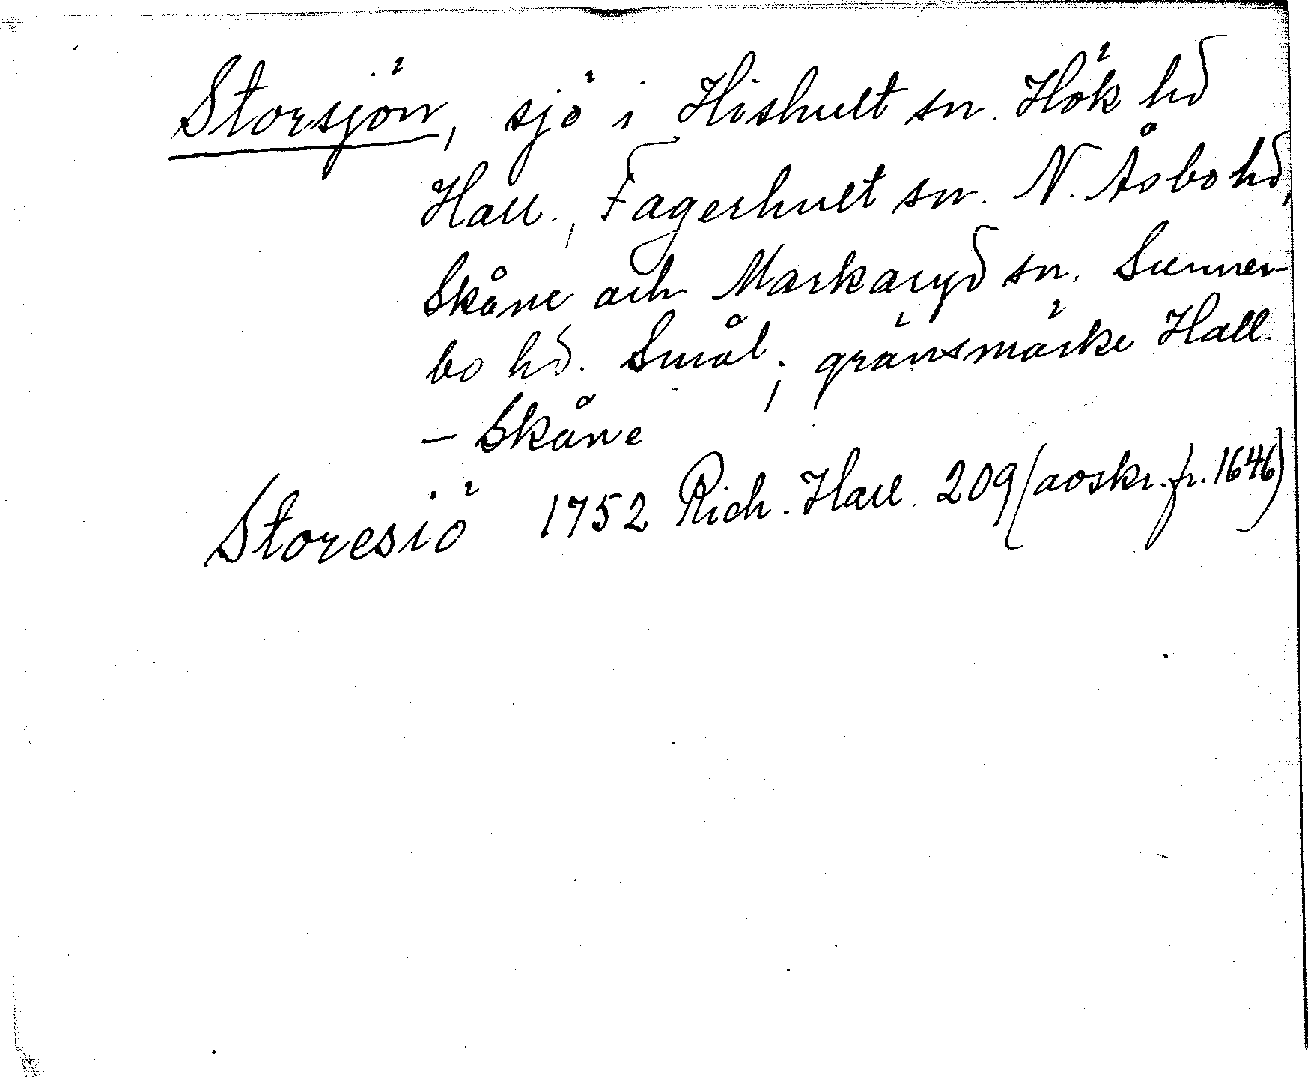 Storsjön, sjö i Hishult sn. Hök hd
Hall., Fagerhult sn. N. Åsbo hd,
Skåne och Markaryd sn. Sunner-
bo hd. Smål.; gränsmärke Hall.
– Skåne
Storesiö 1752 Rich. Hall. 209 (avskr. fr. 1646)